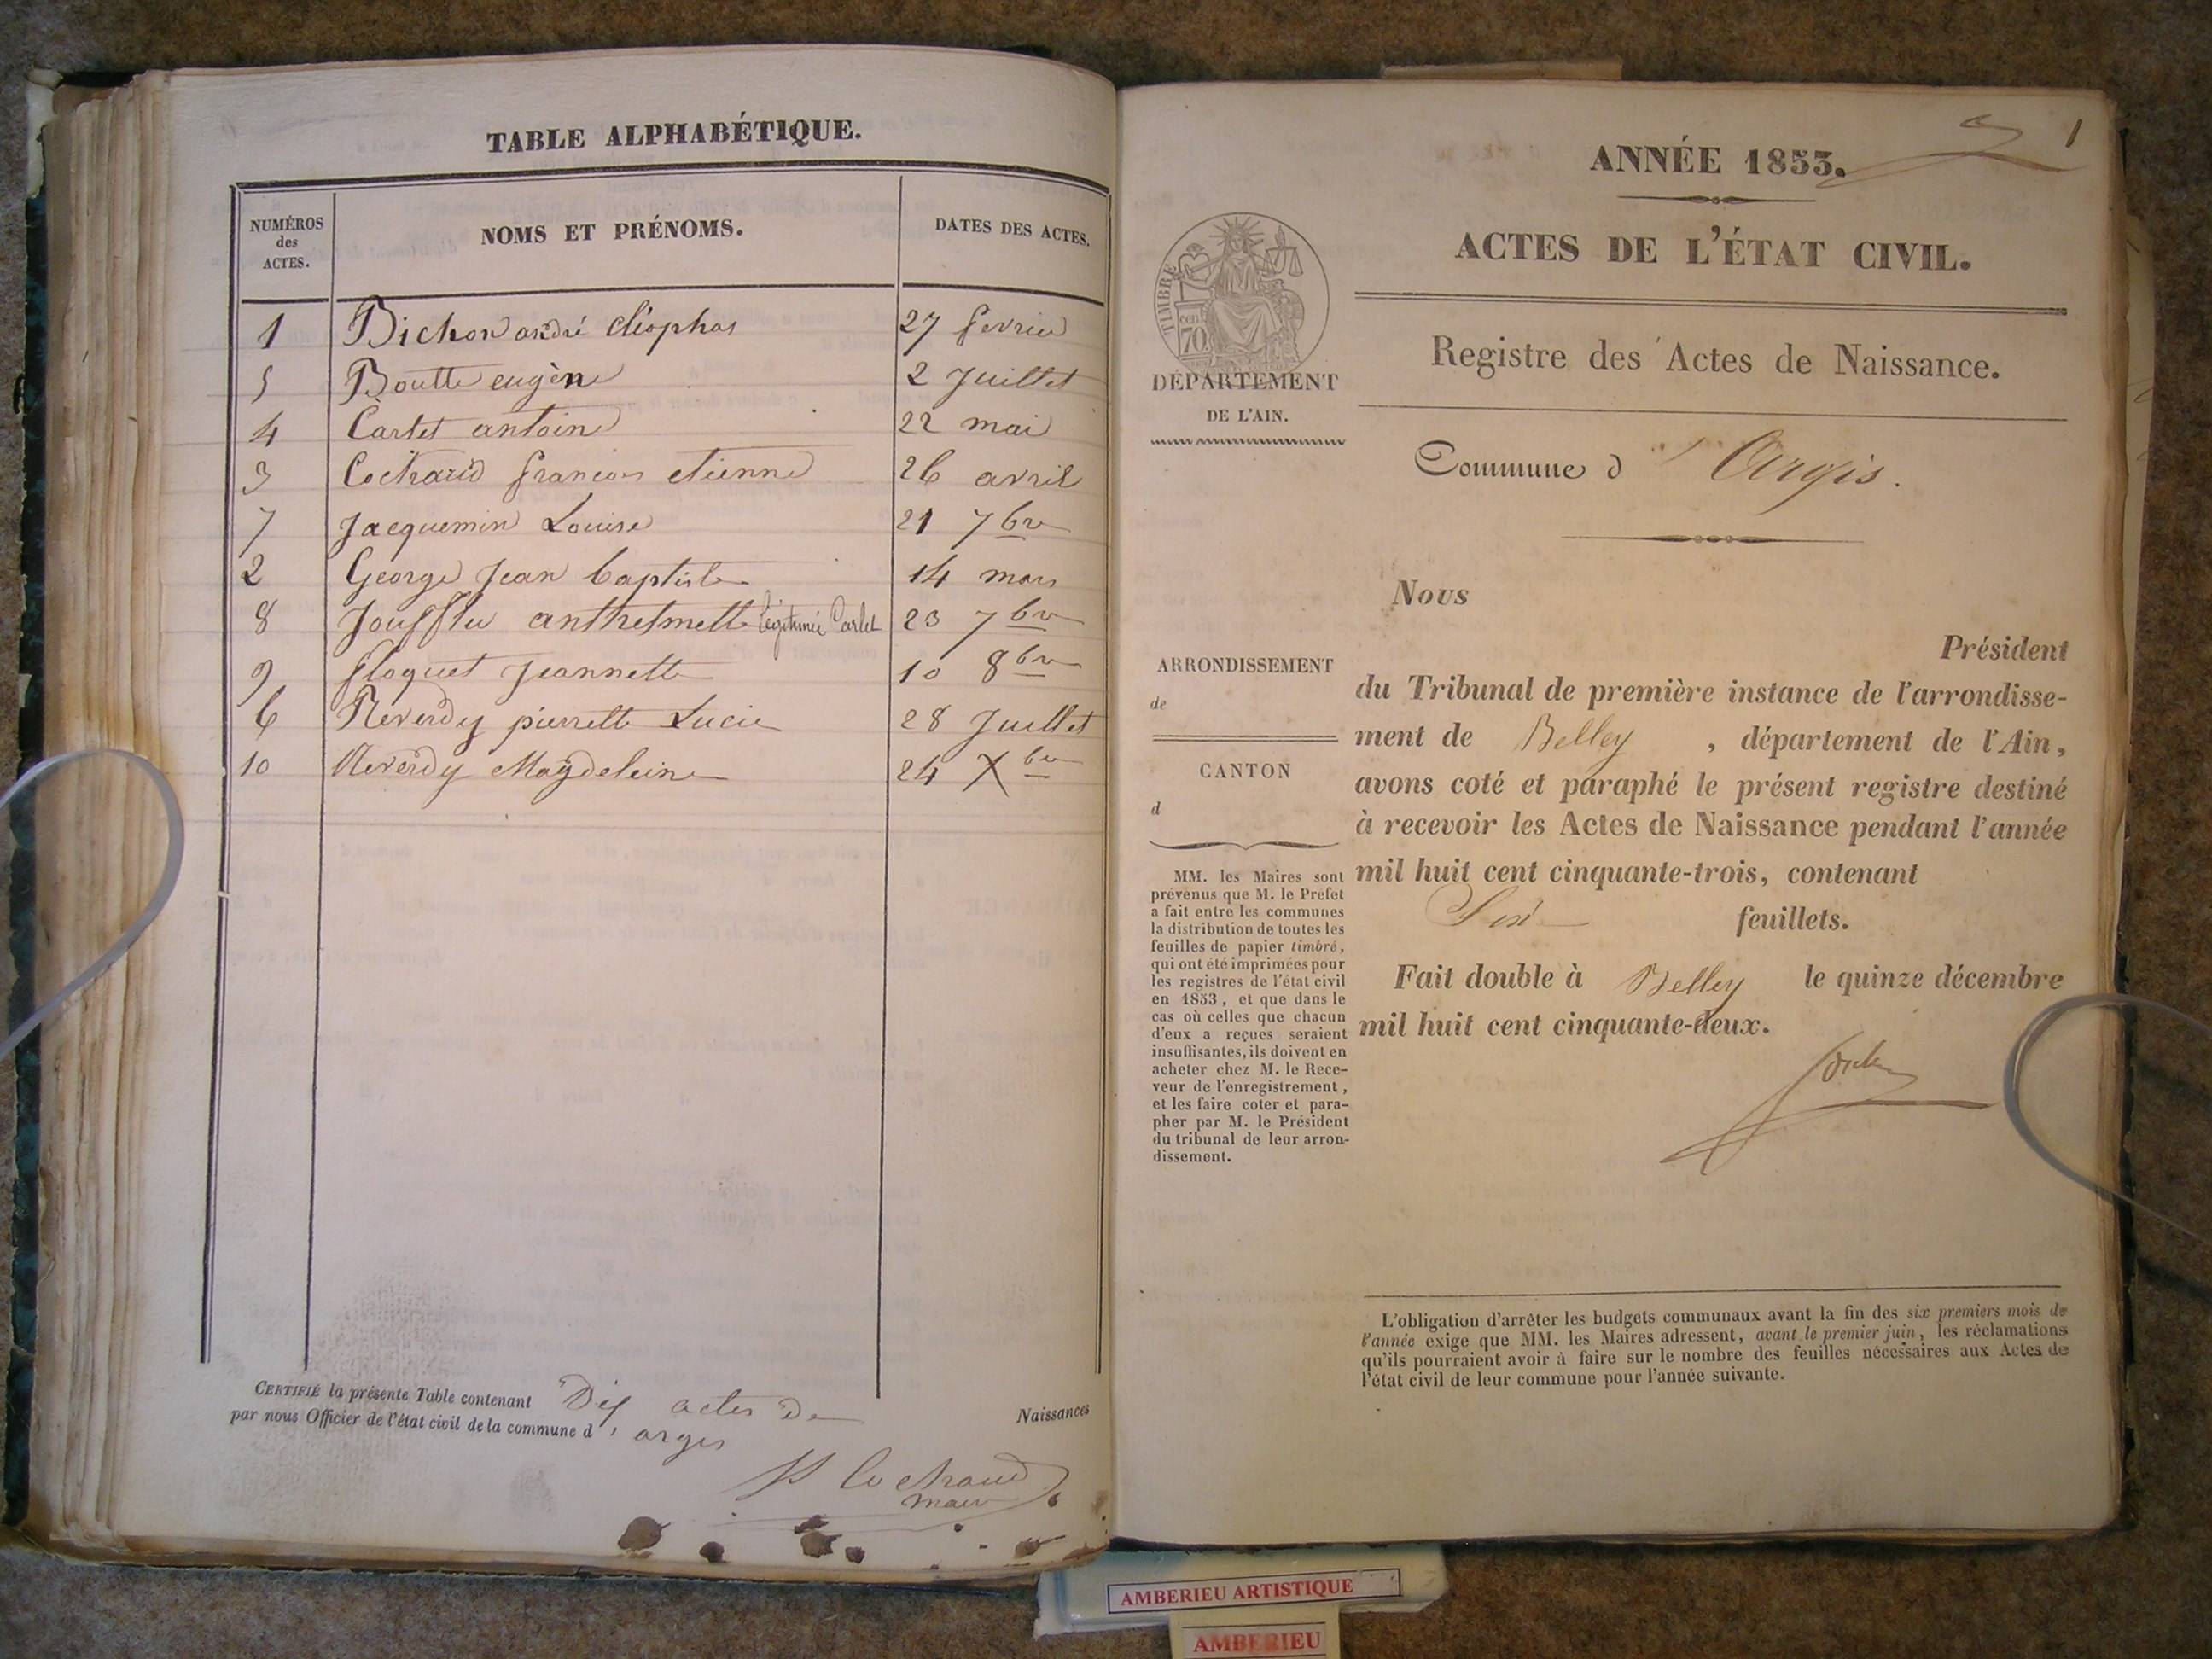 TABLE ALPHABÉTIQUE.
NUMÉROS des ACTES. NOMS ET PRÉNOMS. DATES DES ACTES.
1 Bichon andré cléophas 27 fevrier
5 Boutte eugène 2 Juillet
4 Cartet antoine 22 mai
3 Cochard françois etienne 26 avril
7 Jacquemin Louise 21 7bre
2 George Jean baptiste 14 mars
8 anthelmette légitimée Carlet 23 7bre
9 floquet Jeannette 10 8bre
6 Reverdy pierrette Lucie 28 Juillet
10 Reverdy Magdeleine 24 Xbre
CERTIFIÉ la présente Table contenant Dix actes de Naissances
par nous Officier de l'état civil de la commune d'arges
Cochard
maire
1
ANNÉE 1853.
ACTES DE L'ÉTAT CIVIL.
Registre des Actes de Naissance.
Commune d'Argis.
TIMBRE
cent
70.
DÉPARTEMENT
DE L'AIN.
ARRONDISSEMENT
de
CANTON
d
MM. les Maires sont
prévenus que M. le Préfet
a fait entre les communes
la distribution de toutes les
feuilles de papier timbré,
qui ont été imprimées pour
les registres de l'état civil
en 1853, et que dans le
cas où celles que chacun
d'eux a reçues seraient
insuffisantes, ils doivent en
acheter chez M. le Rece-
veur de l'enregistrement,
et les faire coter et para-
pher par M. le Président
du tribunal de leur arron-
dissement.
Nous
Président
du Tribunal de première instance de l'arrondisse-
ment de Belley, département de l'Ain,
avons coté et paraphé le présent registre destiné
à recevoir les Actes de Naissance pendant l'année
mil huit cent cinquante-trois, contenant
Six feuillets.
Fait double à Belley le quinze décembre
mil huit cent cinquante-deux.
L'obligation d'arrêter les budgets communaux avant la fin des six premiers mois de
l'année exige que MM. les Maires adressent, avant le premier juin, les réclamations
qu'ils pourraient avoir à faire sur le nombre des feuilles nécessaires aux Actes de
l'état civil de leur commune pour l'année suivante.
AMBERIEU ARTISTIQUE
AMBERIEU